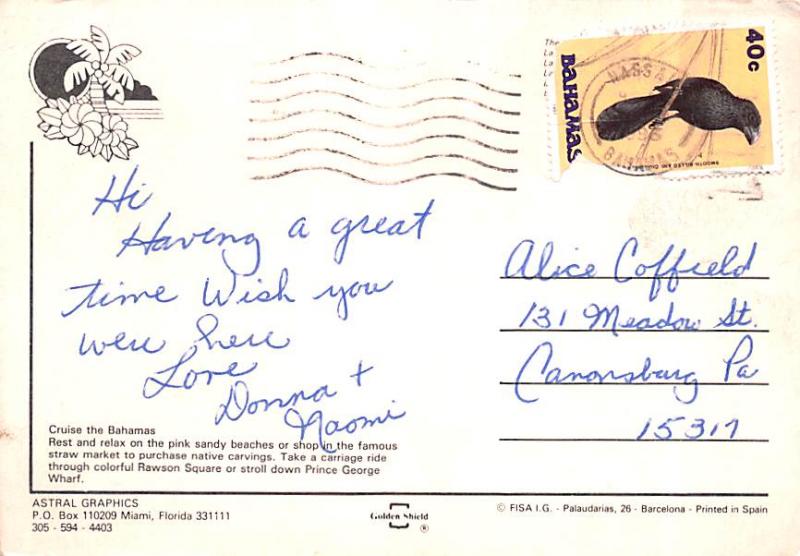 40c
BAHAMAS
NASSA
BAHAMAS
Hi
Having a great
time Wish you
were here
Love
Donna +
Naomi
Alice Coffield
131 Meadow St.
Canonsburg Pa
15317
Cruise the Bahamas
Rest and relax on the pink sandy beaches or shop in the famous
straw market to purchase native carvings. Take a carriage ride
through colorful Rawson Square or stroll down Prince George
Wharf.
ASTRAL GRAPHICS
P.O. Box 110209 Miami, Florida 331111
305 - 594 - 4403
Golden Shield
®
© FISA I.G. - Palaudarias, 26 - Barcelona - Printed in Spain